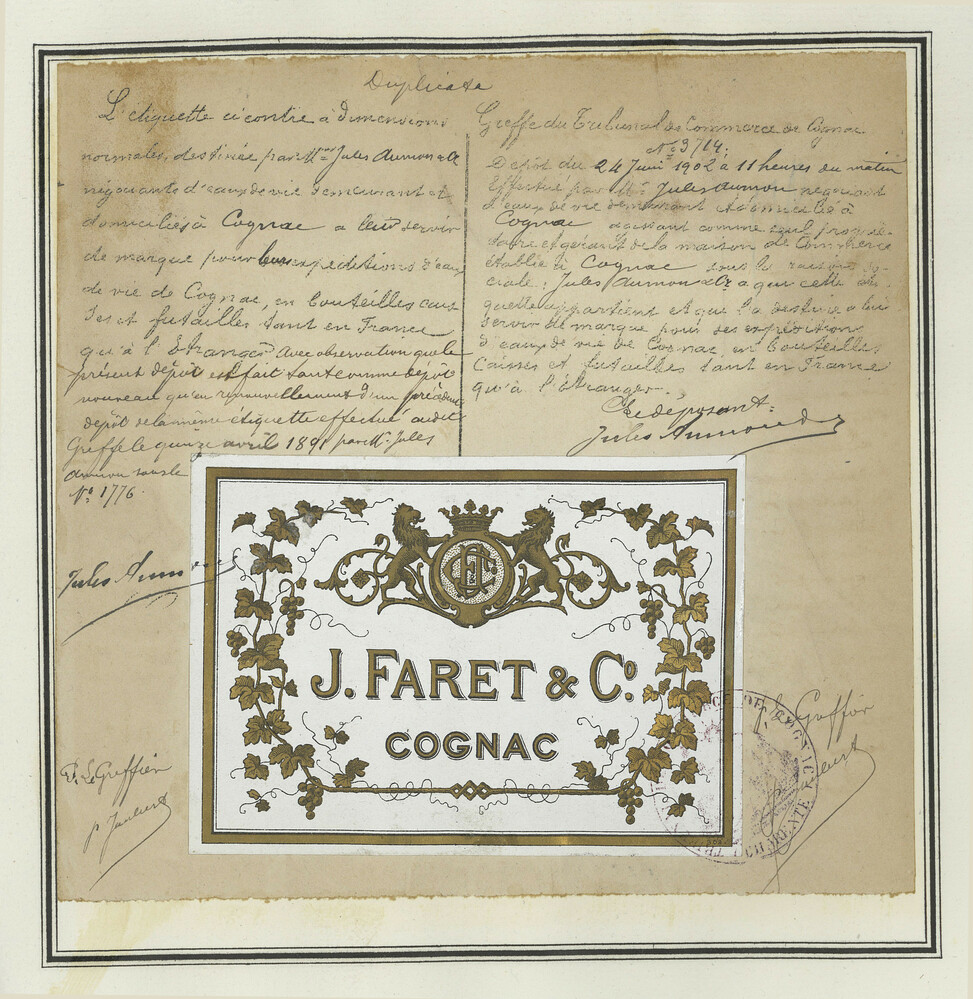 Duplicata
L'étiquette ci contre à dimensions
normales, destinée par Mrs Jules Aumon & Co
négociants d'eaux de vie demeurant et
domiciliés à Cognac a leur servir
de marque pour leurs expéditions d'eaux
de vie de Cognac, en bouteilles cais
ses et futailles, tant en France
qu'à l'Etranger avec observation que le
présent dépôt est fait tant comme dépôt
nouveau qu'en renouvellement d'un précédent
dépôt de la même étiquette effectué audit
Greffe le quinze avril 1891 par Mr Jules
Aumon sous le
No 1776.
Jules Aumon
P. Le Greffier
Greffe du Tribunal de Commerce de Cognac
No 3714.
Dépôt du 24 Juin 1902 à 11 heures du matin
Effectué par Mr Jules Aumon négociant
d'eaux de vie demeurant et domicilié à
Cognac agissant comme seul proprié-
taire et gérant de la maison de Commerce
établie à Cognac sous la raison so-
ciale: Jules Aumon & Co a qui cette éti
quette appartient et que l'a destinée a lui
servir de marque pour ses expéditions
d'eaux de vie de Cognac, en bouteilles
Caisses et futailles tant en France
qu'à l'étranger.
Le déposant:
Jules Aumon & Co
J. FARET & Co.
COGNAC
P. Le Greffier
DE COGNAC
CHARENTE